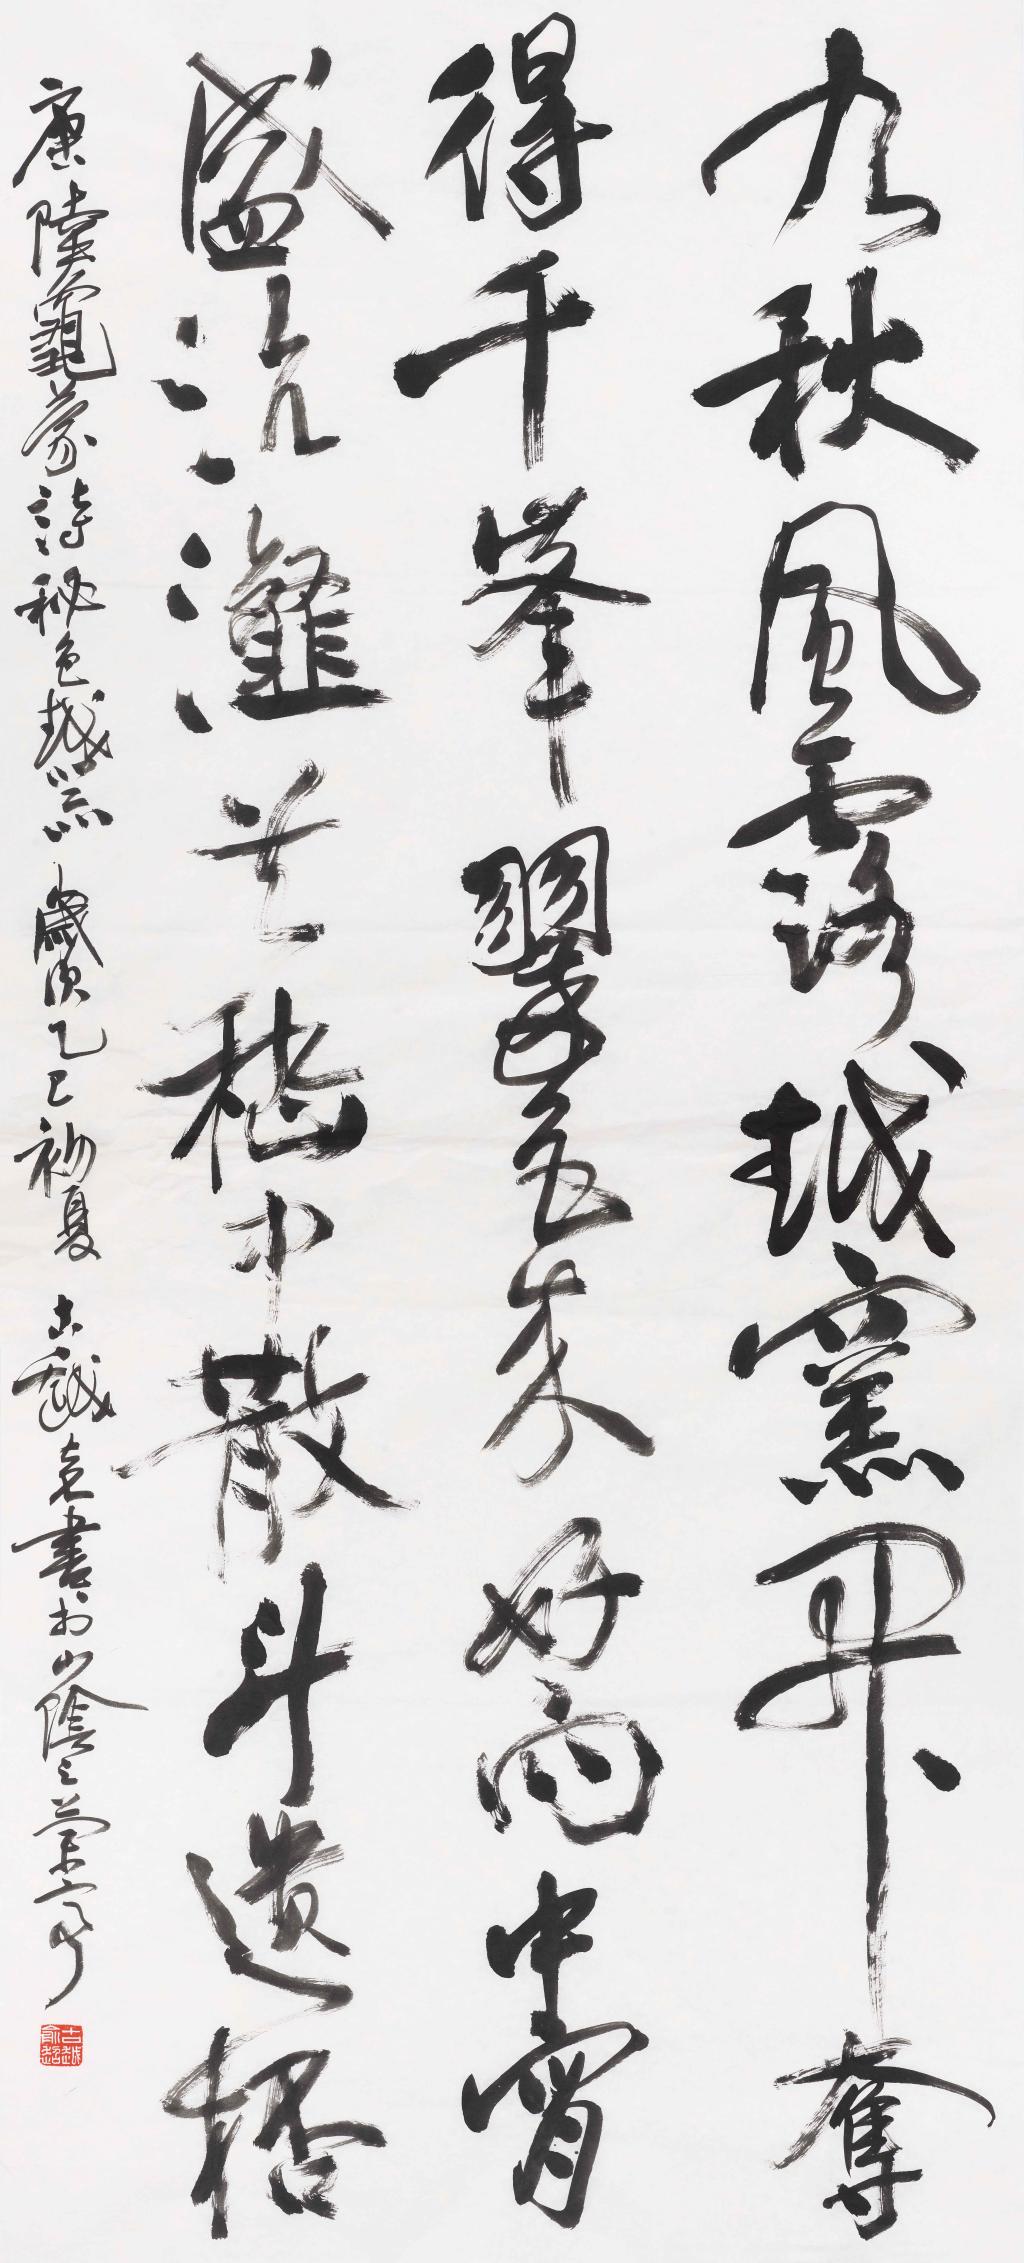 九秋風露越窯開奪
得千峯翠色来好向中宵
盛沆瀣共嵇中散斗遺杯
唐陸龜蒙詩秘色越器 歲次乙巳初夏 古越 書於山陰之蘭亭
古越